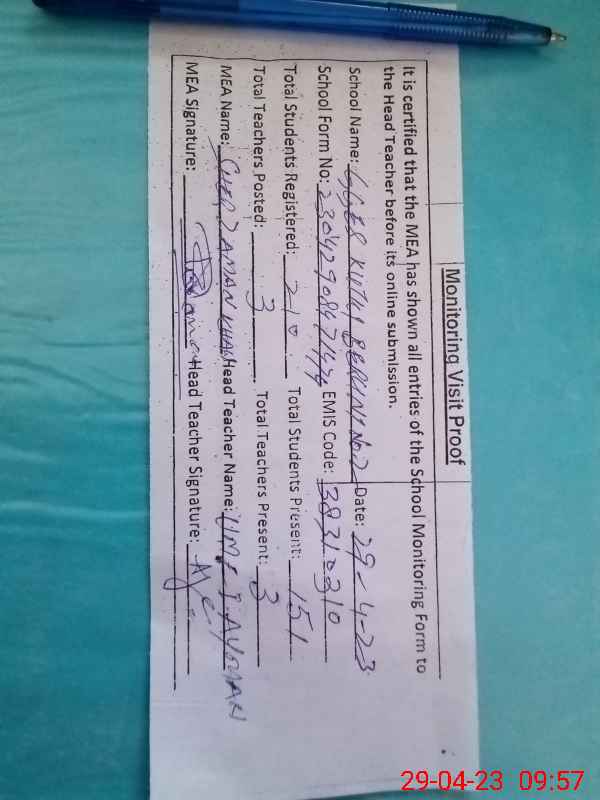 Monitoring Visit Proof
It is certified that the MEA has shown all entries of the School Monitoring Form to
the Head Teacher before its online submission.
School Name: GGES KUTHI BERUNI No.2 Date: 29-4-23
School Form No: EMIS Code: 38310310
Total Students Registered: 210 Total Students Present: 151
Total Teachers Posted: 3 Total Teachers Present: 3
MEA Name: SHER ZAMAN KHAN Head Teacher Name:
MEA Signature: Head Teacher Signature:
29-04-23 09:57